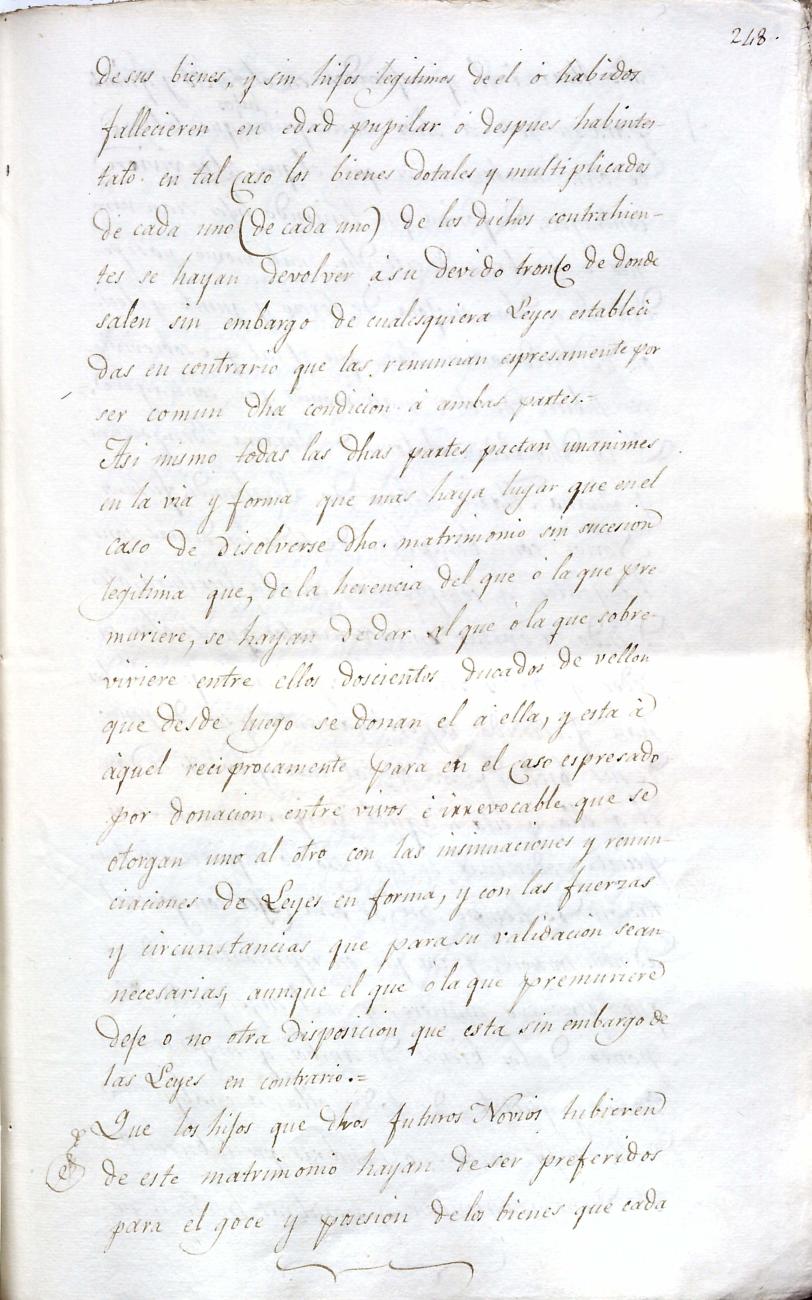 248.
de sus bienes, y sin hijos legitimos de el ó habidos
fallecieren en edad pupilar ó despues habintes-
tato. en tal Caso los bienes dotales y multiplicados
de cada uno (de cada uno) de los dichos contrahien-
tes se hayan devolver á su devido tronco de donde
salen sin embargo de cualesquiera Leyes estableci
das en contrario que las renuncian espresamente por
ser comun dha condicion á ambas partes.=
Asi mismo todas las dhas partes pactan unanimes
en la via y forma que mas haya lugar que en el
caso de disolverse dho. matrimonio sin sucesion
legitima que, de la herencia del que ó la que pre
muriere, se hayan de dar al que ó la que sobre-
viviere entre ellos doscientos ducados de vellon
que desde luego se donan el á ella, y esta á
áquel reciprocamente para en el caso espresado
por donacion entre vivos é irrevocable que se
otorgan uno al otro con las insinuaciones y renun-
ciaciones de Leyes en forma, y con las fuerzas
y circunstancias que para su validacion sean
necesarias, aunque el que ó la que premuriere
deje ó no otra disposicion que esta sin embargo de
las Leyes en contrario.=
Que los hijos que dhos futuros Novios tubieren
de este matrimonio hayan de ser preferidos
para el goce y posesion de los bienes que cada